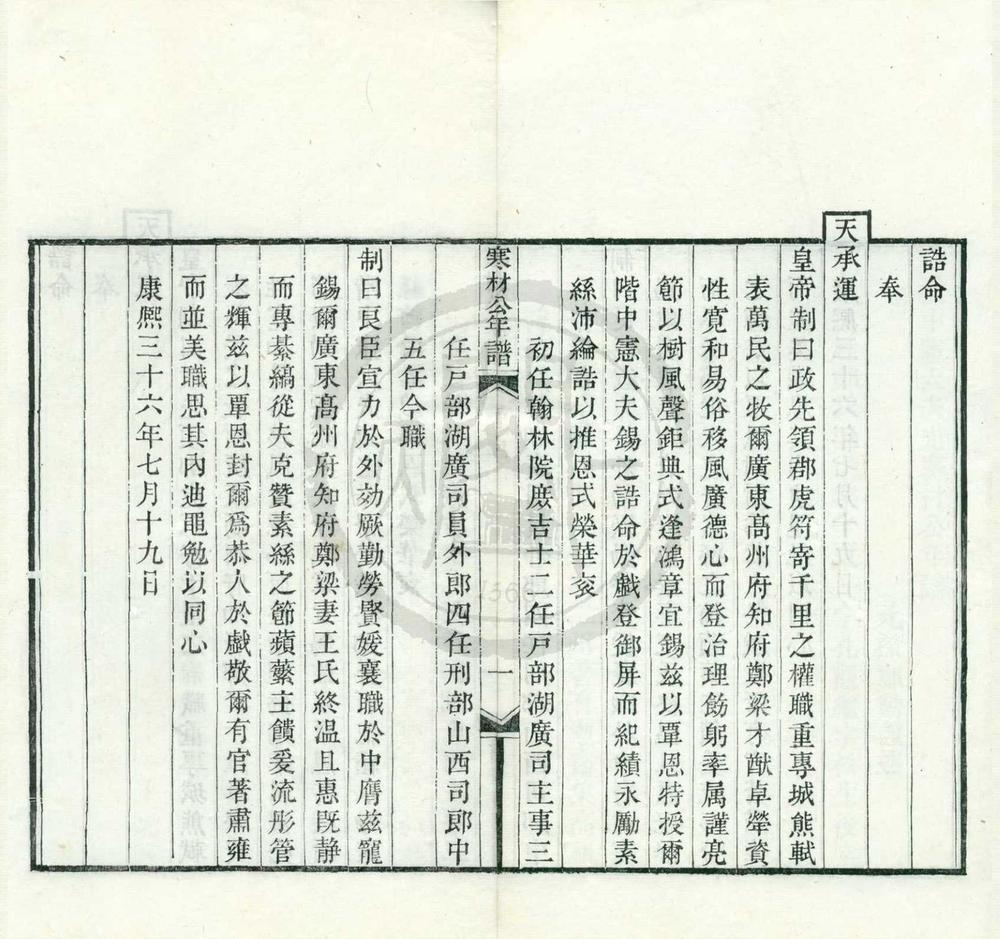 誥命
奉
天承運
皇帝制曰政先領郡虎符寄千里之權職重專城熊軾
表萬民之牧爾廣東髙州府知府鄭梁才猷卓犖資
性寬和易俗移風廣德心而登治理飭躬率属謹亮
節以樹風聲鉅典式逢鴻章宜錫兹以覃恩特授爾
階中憲大夫錫之誥命於戲登御屏而紀績永勵素
絲沛綸誥以推恩式榮華衮
初任翰林院庶吉士二任戸部湖廣司主事三
寒村公年譜
一
任戸部湖廣司員外郎四任刑部山西司郎中
五任今職
制曰良臣宣力於外効厥勤勞賢媛襄職於中膺兹寵
錫爾廣東髙州府知府鄭梁妻王氏終温且惠旣静
而專綦縞從夫克贊素絲之節蘋蘩主饋爰流彤管
之輝兹以覃恩封爾爲恭人於戲敬爾有官著肅雍
而並美職思其內迪黽勉以同心
康熙三十六年七月十九日